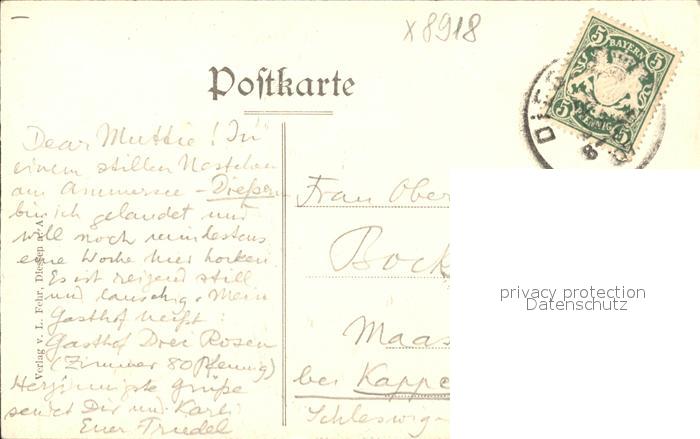 x8918
5 BAYERN 5
5 PFENNIG 5
Postkarte
Dear Muttie! In
einem stillen Nestchen
am Ammersee - Dießen
bin ich gelandet und
will noch mindestens
eine Woche hier hocken
Es ist reizend still
und lauschig. Mein
Gasthof heißt:
Gasthof Drei Rosen
(Zimmer 80 Pfennig)
Herzinnigste Grüße
sendet Dir und Karli
Euer Friedel
Verlag v. L. Fehr, Diessen a. A.
Frau Ober
Bock
Maas
bei Kappe
Schleswig-
privacy protection
Datenschutz